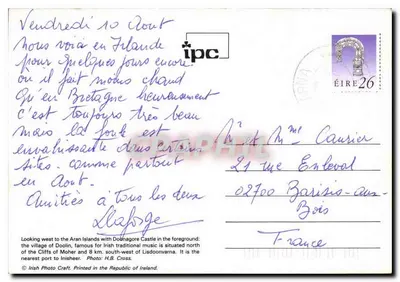 Vendredi 10 Aout
nous voici en Irlande
pour quelques jours encore
ou il fait moins chaud
qu'en Bretagne heureusement
c'est toujours très beau
mais la foule est
envahissante dans certains
sites. comme partout
en Aout.
Amitiés à tous les deux
Llaforge
ipc
ÉIRE 26
Mr & Mme Caurier
21 rue Enlaval
02700 Barisis-aux-
Bois
France
Looking west to the Aran Islands with Doonagore Castle in the foreground:
the village of Doolin, famous for Irish traditional music is situated north
of the Cliffs of Moher and 8 km. south-west of Lisdoonvarna. It is the
nearest port to Inisheer. Photo: H.B. Cross.
© Irish Photo Craft. Printed in the Republic of Ireland.